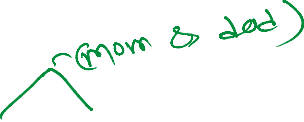 (mom & dad)